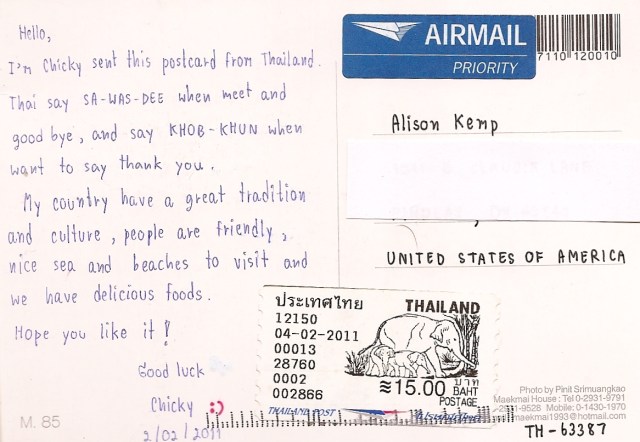 Hello,
I'm Chicky sent this postcard from Thailand.
Thai say SA-WAS-DEE when meet and
good bye, and say KHOB-KHUN when
want to say thank you.
My country have a great tradition
and culture, people are friendly,
nice sea and beaches to visit and
we have delicious foods.
Hope you like it!
Good luck
Chicky :)
2/02/2011
M. 85
AIRMAIL
PRIORITY
7110120010
Alison Kemp
UNITED STATES OF AMERICA
ประเทศไทย
THAILAND
12150
04-02-2011
00013
28760
0002
002866
≋15.00 บาท
BAHT
POSTAGE
THAILAND POST
Photo by Pinit Srimuangkao
Maekmai House : Tel 0-2931-9791
-9528 Mobile: 0-1430-1970
maekmai1993@hotmail.com
TH-63387